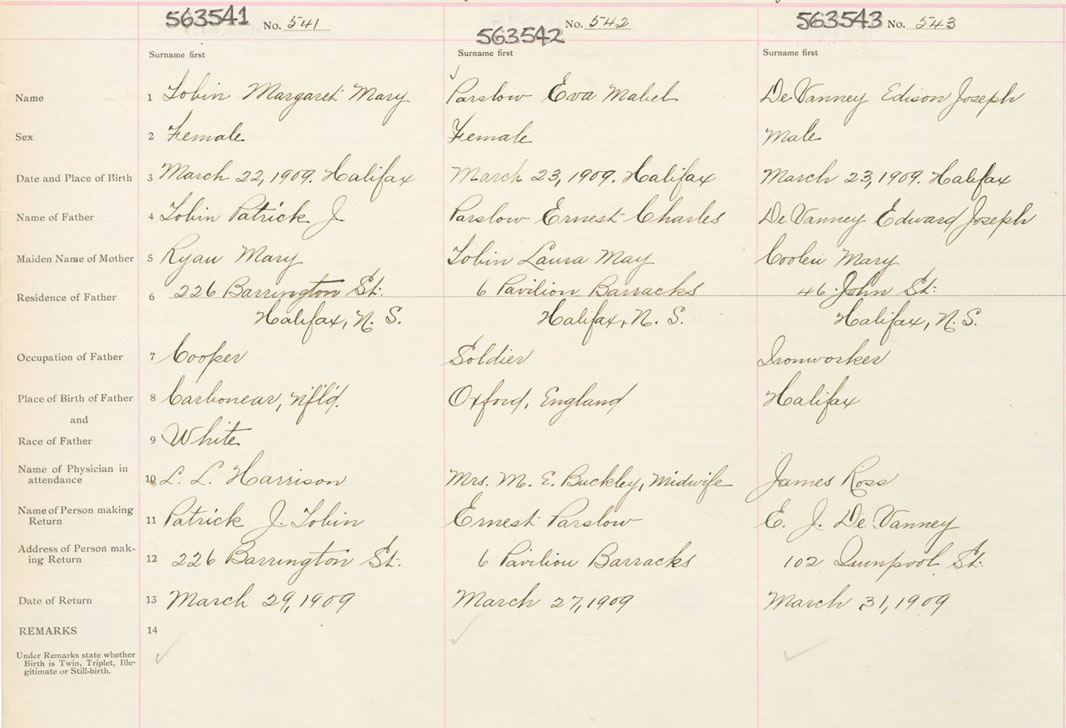 563541 No. 541 563542 No. 542 563543 No. 543
Surname first Surname first Surname first
Name 1 Tobin Margaret Mary Parslow Eva Mabel De Vanney Edison Joseph
Sex 2 Female Female Male
Date and Place of Birth 3 March 22, 1909. Halifax March 23, 1909. Halifax March 23, 1909. Halifax
Name of Father 4 Tobin Patrick J Parslow Ernest Charles De Vanney Edward Joseph
Maiden Name of Mother 5 Ryan Mary Tobin Laura May Coolen Mary
Residence of Father 6 226 Barrington St. 6 Pavilion Barracks 46 John St.
Halifax, N. S. Halifax, N. S. Halifax, N. S.
Occupation of Father 7 Cooper Soldier Ironworker
Place of Birth of Father 8 Carbonear, Nfl'd. Oxford, England Halifax
and
Race of Father 9 White
Name of Physician in
attendance 10 L. L. Harrison Mrs. M. E. Buckley, Midwife James Ross
Name of Person making
Return 11 Patrick J. Tobin Ernest Parslow E. J. De Vanney
Address of Person mak-
ing Return 12 226 Barrington St. 6 Pavilion Barracks 102 Quinpool St.
Date of Return 13 March 29, 1909 March 27, 1909 March 31, 1909
REMARKS 14
Under Remarks state whether
Birth is Twin, Triplet, Ille-
gitimate or Still-birth.